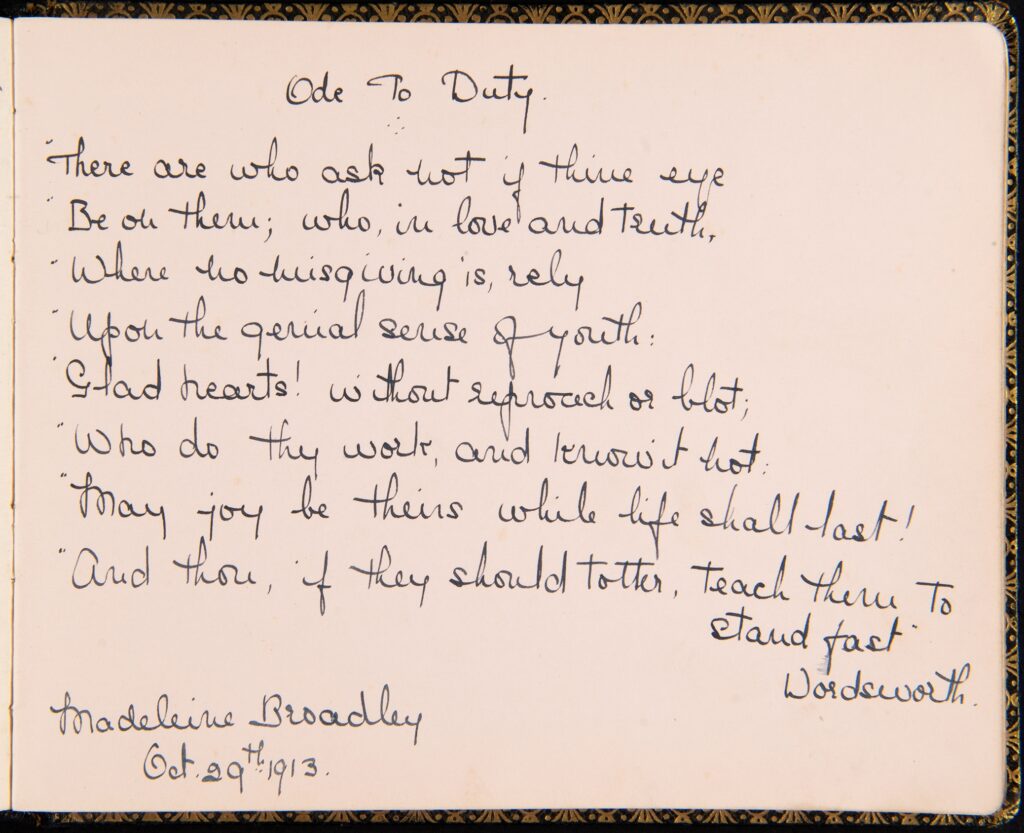 Ode To Duty.
"There are who ask not if thine eye
"Be on them; who, in love and truth,
"Where no misgiving is, rely
"Upon the genial sense of youth:
"Glad hearts! without reproach or blot;
"Who do thy work, and know it not:
"May joy be theirs while life shall last!
"And thou, if they should totter, teach them To
stand fast"
Wordsworth.
Madeleine Broadley
Oct. 29th. 1913.